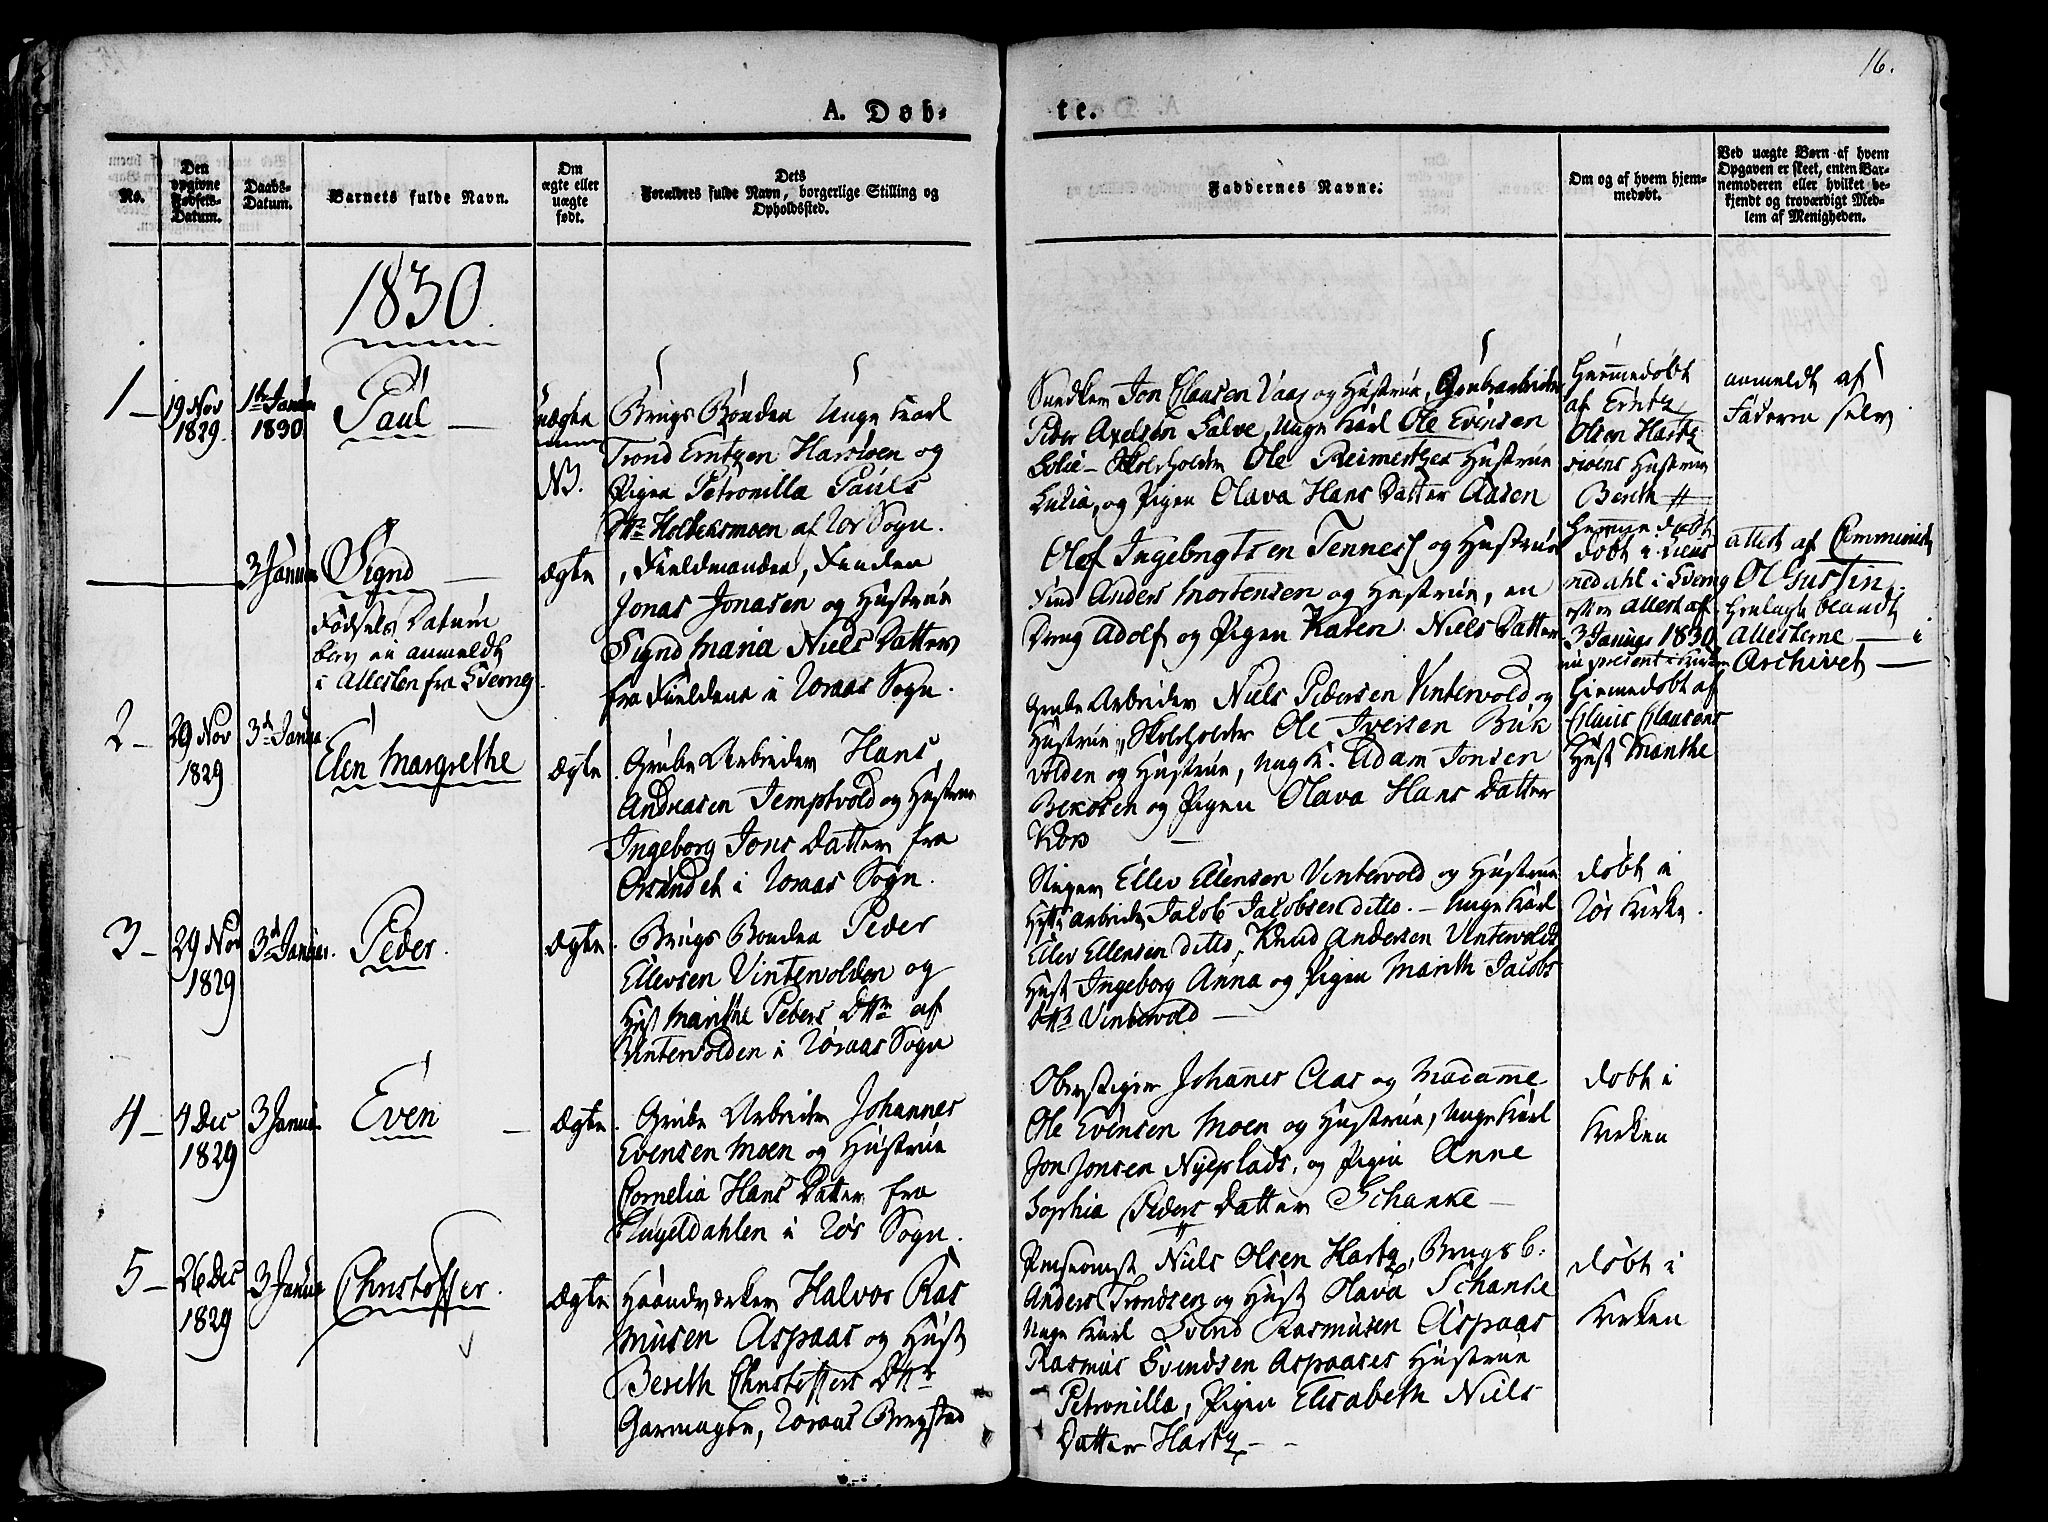 16.
A. Døb-
te.
No.
Den opgivne Fødsels-Datum.
Daabs-Datum.
Barnets fulde Navn.
Om ægte eller uægte født.
Dets
Forældres fulde Navn, borgerlige Stilling og
Opholdssted.
Faddernes Navne.
Om og af hvem hjem-
medøbt.
Ved uægte Børn af hvem
Opgaven er skeet, enten Bar-
nemoderen eller hvilket be-
kjendt og troværdigt Med-
lem af Menigheden.
1830.
1 –
19 Nov
1829.
1ste Januar
1830
Paul –
uægte
NB.
Brugs Bonden Unge Karl
Trond Erntzen Harsioen og
Pigen Petronilla Pauls
Dttr Holtensmoen af Rør Sogn.
Snedker Jon Clausen Vaas og Hustrue, Grubearbeider
Peder Axelsen Galve, Unge Karl Ole Evensen
Skoleholder Ole Reimertzes Hustrue
Lucia, og Pigen Olava Hans Datter Aasen
Hiemmedøbt
af Erntz
Olsen Hartz
sioens Hustrue
Berith
anmeldt af
Faderen selv
3 Januar
Signd –
Fødsels Datum
blev ei anmeldt
i Attesten fra Sverrig.
ægte
Fieldmanden, Finden
Jonas Jonasen og Hustrue
Signd Maria Niels Datter
fra Fieldene i Røraas Sogn.
Olef Ingebrigtsen Tennesf og Hustrue
Find Anders Mortensen og Hustrue, en
Dreng Adolf og Pigen Karen Niels Datter
døbt i
nedahl i Sverrig
efter Attest af
3 Januar 1830
attest af
Ol Gustin.
Henlagt blandt
Attesterne – i
Archivet –
2 –
29 Nov
1829
3d Janua.
Elen Margrethe
Ægte.
Grube Arbeider Hans
Andreasen Jemptvold og Hustrue
Ingeborg Jons Datter fra
Orsundet i Røraas Sogn.
Grube Arbeider Niels Pedersen Vintervold og
Hustrue, Skoleholder Ole Iversen Buk
volden og Hustrue, Unge K. Adam Jonsen
Bekosen og Pigen Olava Hans Datter
Kors
Hiemmedøbt af
Claus Clausens
Hust Marithe
3 –
29 Nov
1829
3d Januar.
Peder.
Ægte.
Brugs Bonden Peder
Ellevsen Vintervolden og
Hust Marithe Peders Dttr af
Vintervolden i Røraas Sogn
Stiger Ellev Ellensen Vintervold og Hustrue
Hytte Arbeider Jacob Jacobsen ditto. – Unge Karl
Ellev Ellensen ditto, Knud Andersen Vintervolds
Hust Ingeborg Anna og Pigen Marith Jacobs
Dttr Vintervold –
døbt i
Rørs Kirke.
4 –
4 Dec
1829
3 Januar
Even –
Ægte.
Grube Arbeider Johannes
Evensen Moen og Hustrue
Cornelia Hans Datter fra
Hugeldahlen i Rørs Sogn.
Oberstiger Johannes Aas og Madamme
Ole Evensen Moen og Hustrue, Unge Karl
Jon Jonsen Nyeplads, og Pigen Anne
Sophia Peders Datter Schanke –
døbt i
Kirken
5 –
26 Dec
1829
3 Janua
Christoffer.
Ægte
Haandværker Halvor Ras
musen Aspaas og Hust
Berith Christoffers Dttr
Garmager, Røraas Bergstad
Niels Olsen Hartz, Brugsb:
Anders Trondsen og Hust Olava Schanke
Unge Karl Svend Rasmusen Aspaas
Rasmus Svendsen Aspaases Hustrue
Petronilla, Pigen Elisabeth Niels
Datter Hartz –
døbt i
Kirken